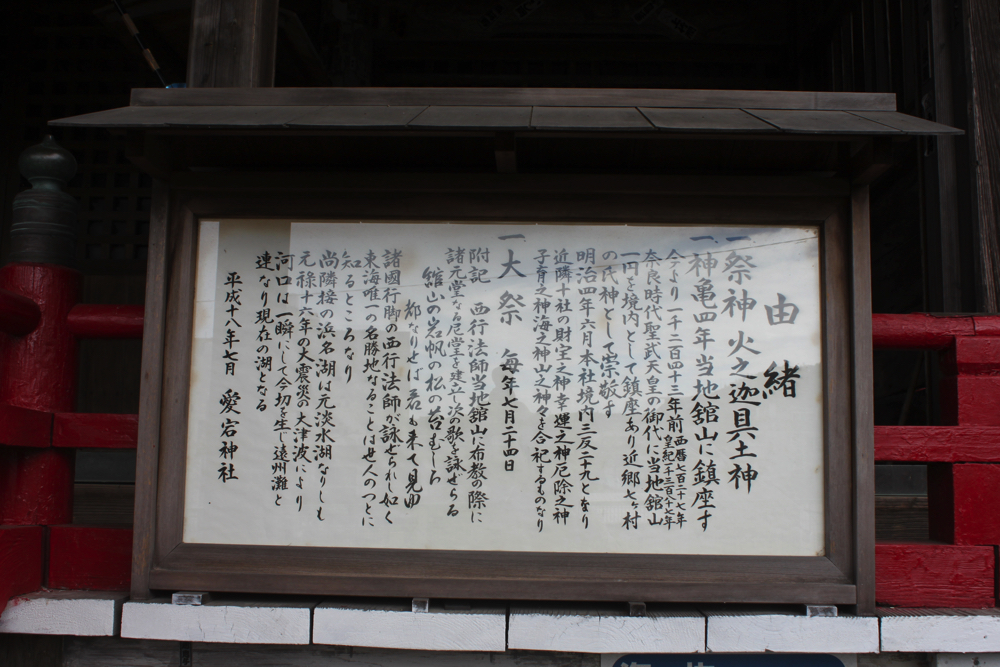 由緒
一、祭神 火之迦具土神
一、神亀四年当地舘山に鎮座す
今より一千二百四十三年前 西暦七百二十七年 皇紀一千三百十七年
奈良時代聖武天皇の御代に当地舘山
一円を境内として鎮座あり近郷七ヶ村
の氏神として崇敬す
明治四年六月本社境内三反二十九となり
近隣十社の財宝之神幸運之神厄除之神
子育之神海之神山之神々を合記するものなり
一、大祭 毎年七月二十四日
附記 西行法師当地舘山に布教の際に
諸元堂なる尼堂を建立し次の歌を詠ぜらる
舘山の岩帆の松の苔むしろ
都なりせば君も来て見ゆ
諸國行脚の西行法師が詠ぜられし如く
東海唯一の名勝地なることは世人のつとに
知るところなり
尚隣接の浜名湖は元淡水湖なりしも
元禄十六年の大震災の大津波により
河口は一瞬にして今切を生じ遠州灘と
連なり現在の湖となる
平成十八年七月 愛宕神社